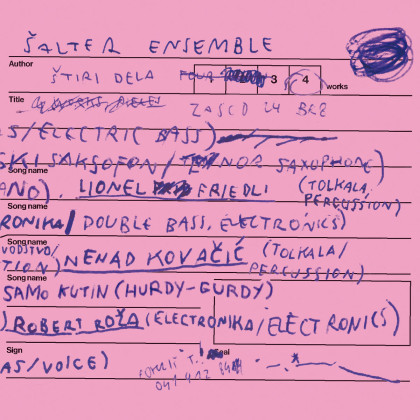 ŠALTER ENSEMBLE
Author
ŠTIRI DELA FOUR 3 4 works
Title
ZASED 24 BRE
S/ELECTRIC BASS)
SKI SAKSOFON/TENOR SAXOPHONE)
Song name
ANO), LIONEL FRIEDLI (TOLKALA,
PERCUSSION)
Song name
RONIKA/DOUBLE BASS, ELECTRONICS)
Song name
VODSTVO/
TION) NENAD KOVAČIĆ (TOLKALA/
PERCUSSION)
Song name
SAMO KUTIN (HURDY-GURDY)
) ROBERT ROŽA (ELECTRONIKA/ELECTRONICS)
Sign
AS/VOICE)